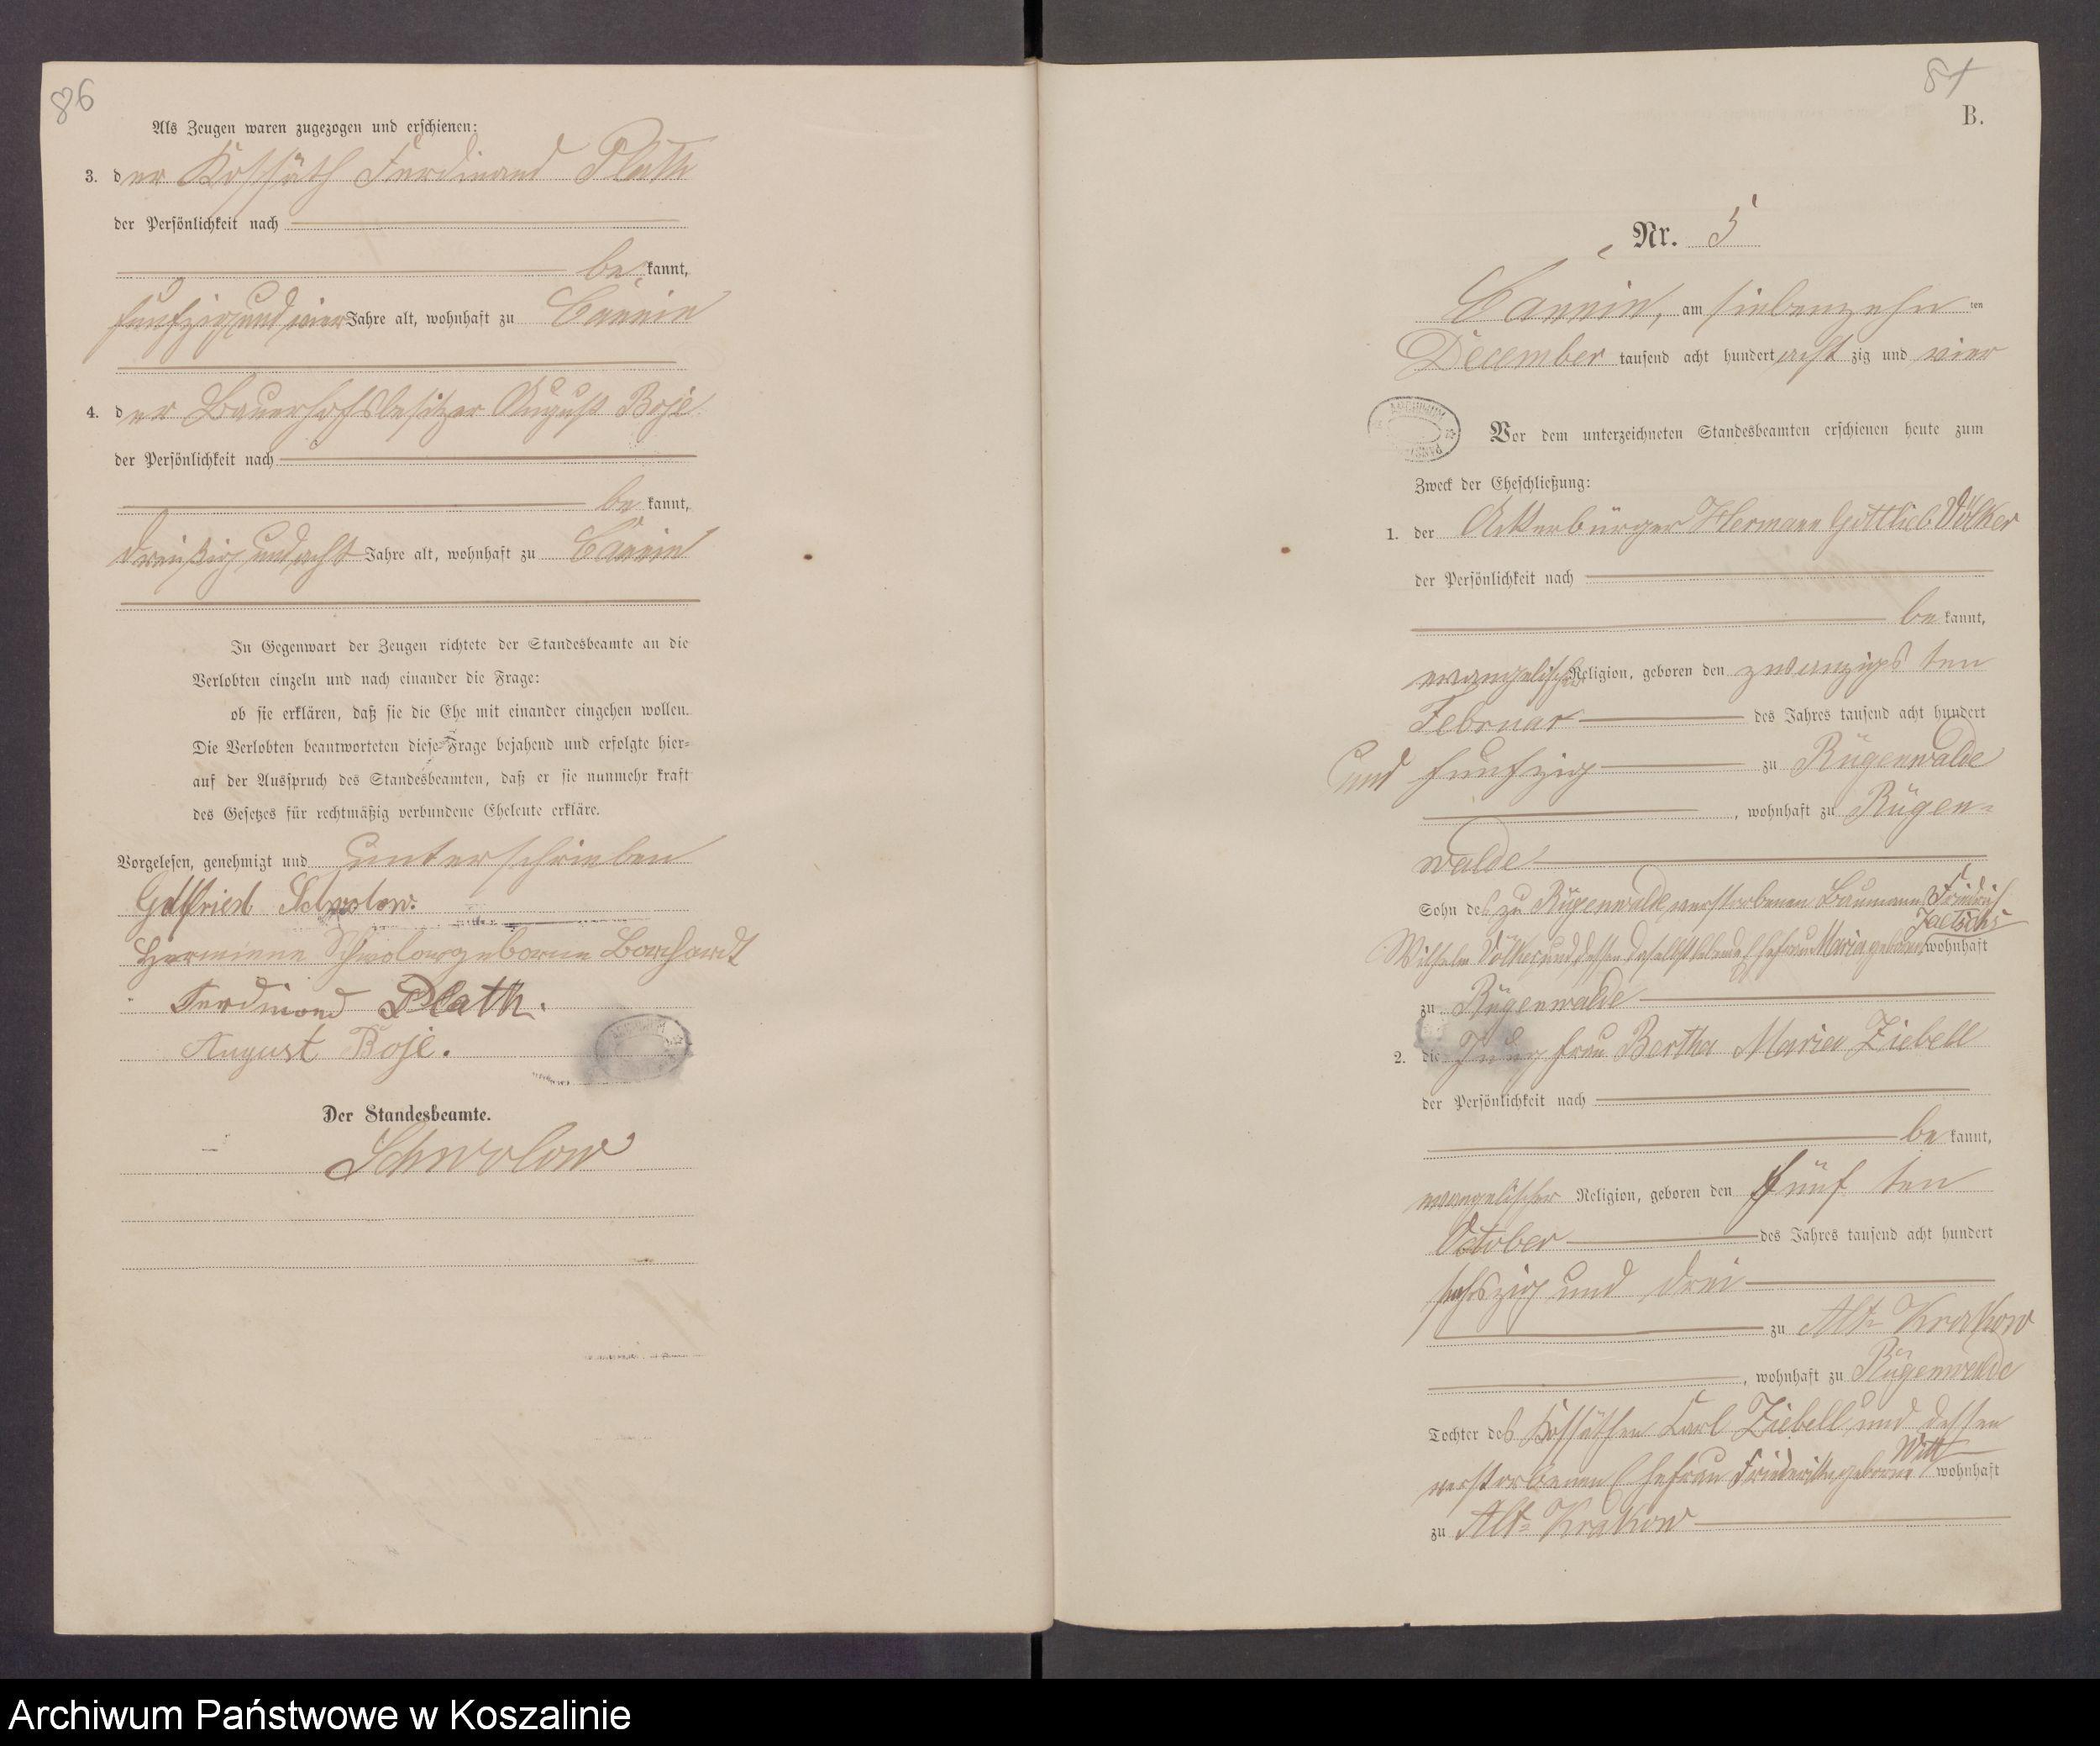 86
Als Zeugen waren zugezogen und erschienen:
3. der Kossäth Ferdinand Plath
der Persönlichkeit nach
be kannt,
fünfzig und vier Jahre alt, wohnhaft zu Cannin
4. der Bauerhofsbesitzer August Boje
der Persönlichkeit nach
be kannt,
dreißig und acht Jahre alt, wohnhaft zu Cannin
In Gegenwart der Zeugen richtete der Standesbeamte an die
Verlobten einzeln und nach einander die Frage:
ob sie erklären, daß sie die Ehe mit einander eingehen wollen.
Die Verlobten beantworteten diese Frage bejahend und erfolgte hier-
auf der Ausspruch des Standesbeamten, daß er sie nunmehr kraft
des Gesetzes für rechtmäßig verbundene Eheleute erkläre.
Vorgelesen, genehmigt und unterschrieben
Gottfried Schwolow.
Hermine Schwolow geborene Borchardt
Ferdinand Plath.
August Boje.
Der Standesbeamte.
Schwolow
81
B.
Nr. 5
Cannin, am siebenzehn ten
December tausend acht hundert acht zig und vier
Vor dem unterzeichneten Standesbeamten erschienen heute zum
Zweck der Eheschließung:
1. der Ackerbürger Hermann Gottlieb Völker
der Persönlichkeit nach
be kannt,
evangelischer Religion, geboren den zwanzigs ten
Februar des Jahres tausend acht hundert
und fünfzig zu Rügenwalde
, wohnhaft zu Rügen-
walde
Sohn des zu Rügenwalde verstorbenen Baumann Friedrich
Wilhelm Völker und dessen daselbst lebende Ehefrau Maria geborene wohnhaft
zu Rügenwalde
2. die Jungfrau Bertha Maria Ziebell
der Persönlichkeit nach
be kannt,
evangelischer Religion, geboren den fünf ten
October des Jahres tausend acht hundert
sechszig und drei
zu Alt-Krakow
, wohnhaft zu Rügenwalde
Tochter des Kossäthen Carl Ziebell und dessen
verstorbenen Ehefrau Friederike geborene Witt wohnhaft
zu Alt-Krakow
Archiwum Państwowe w Koszalinie